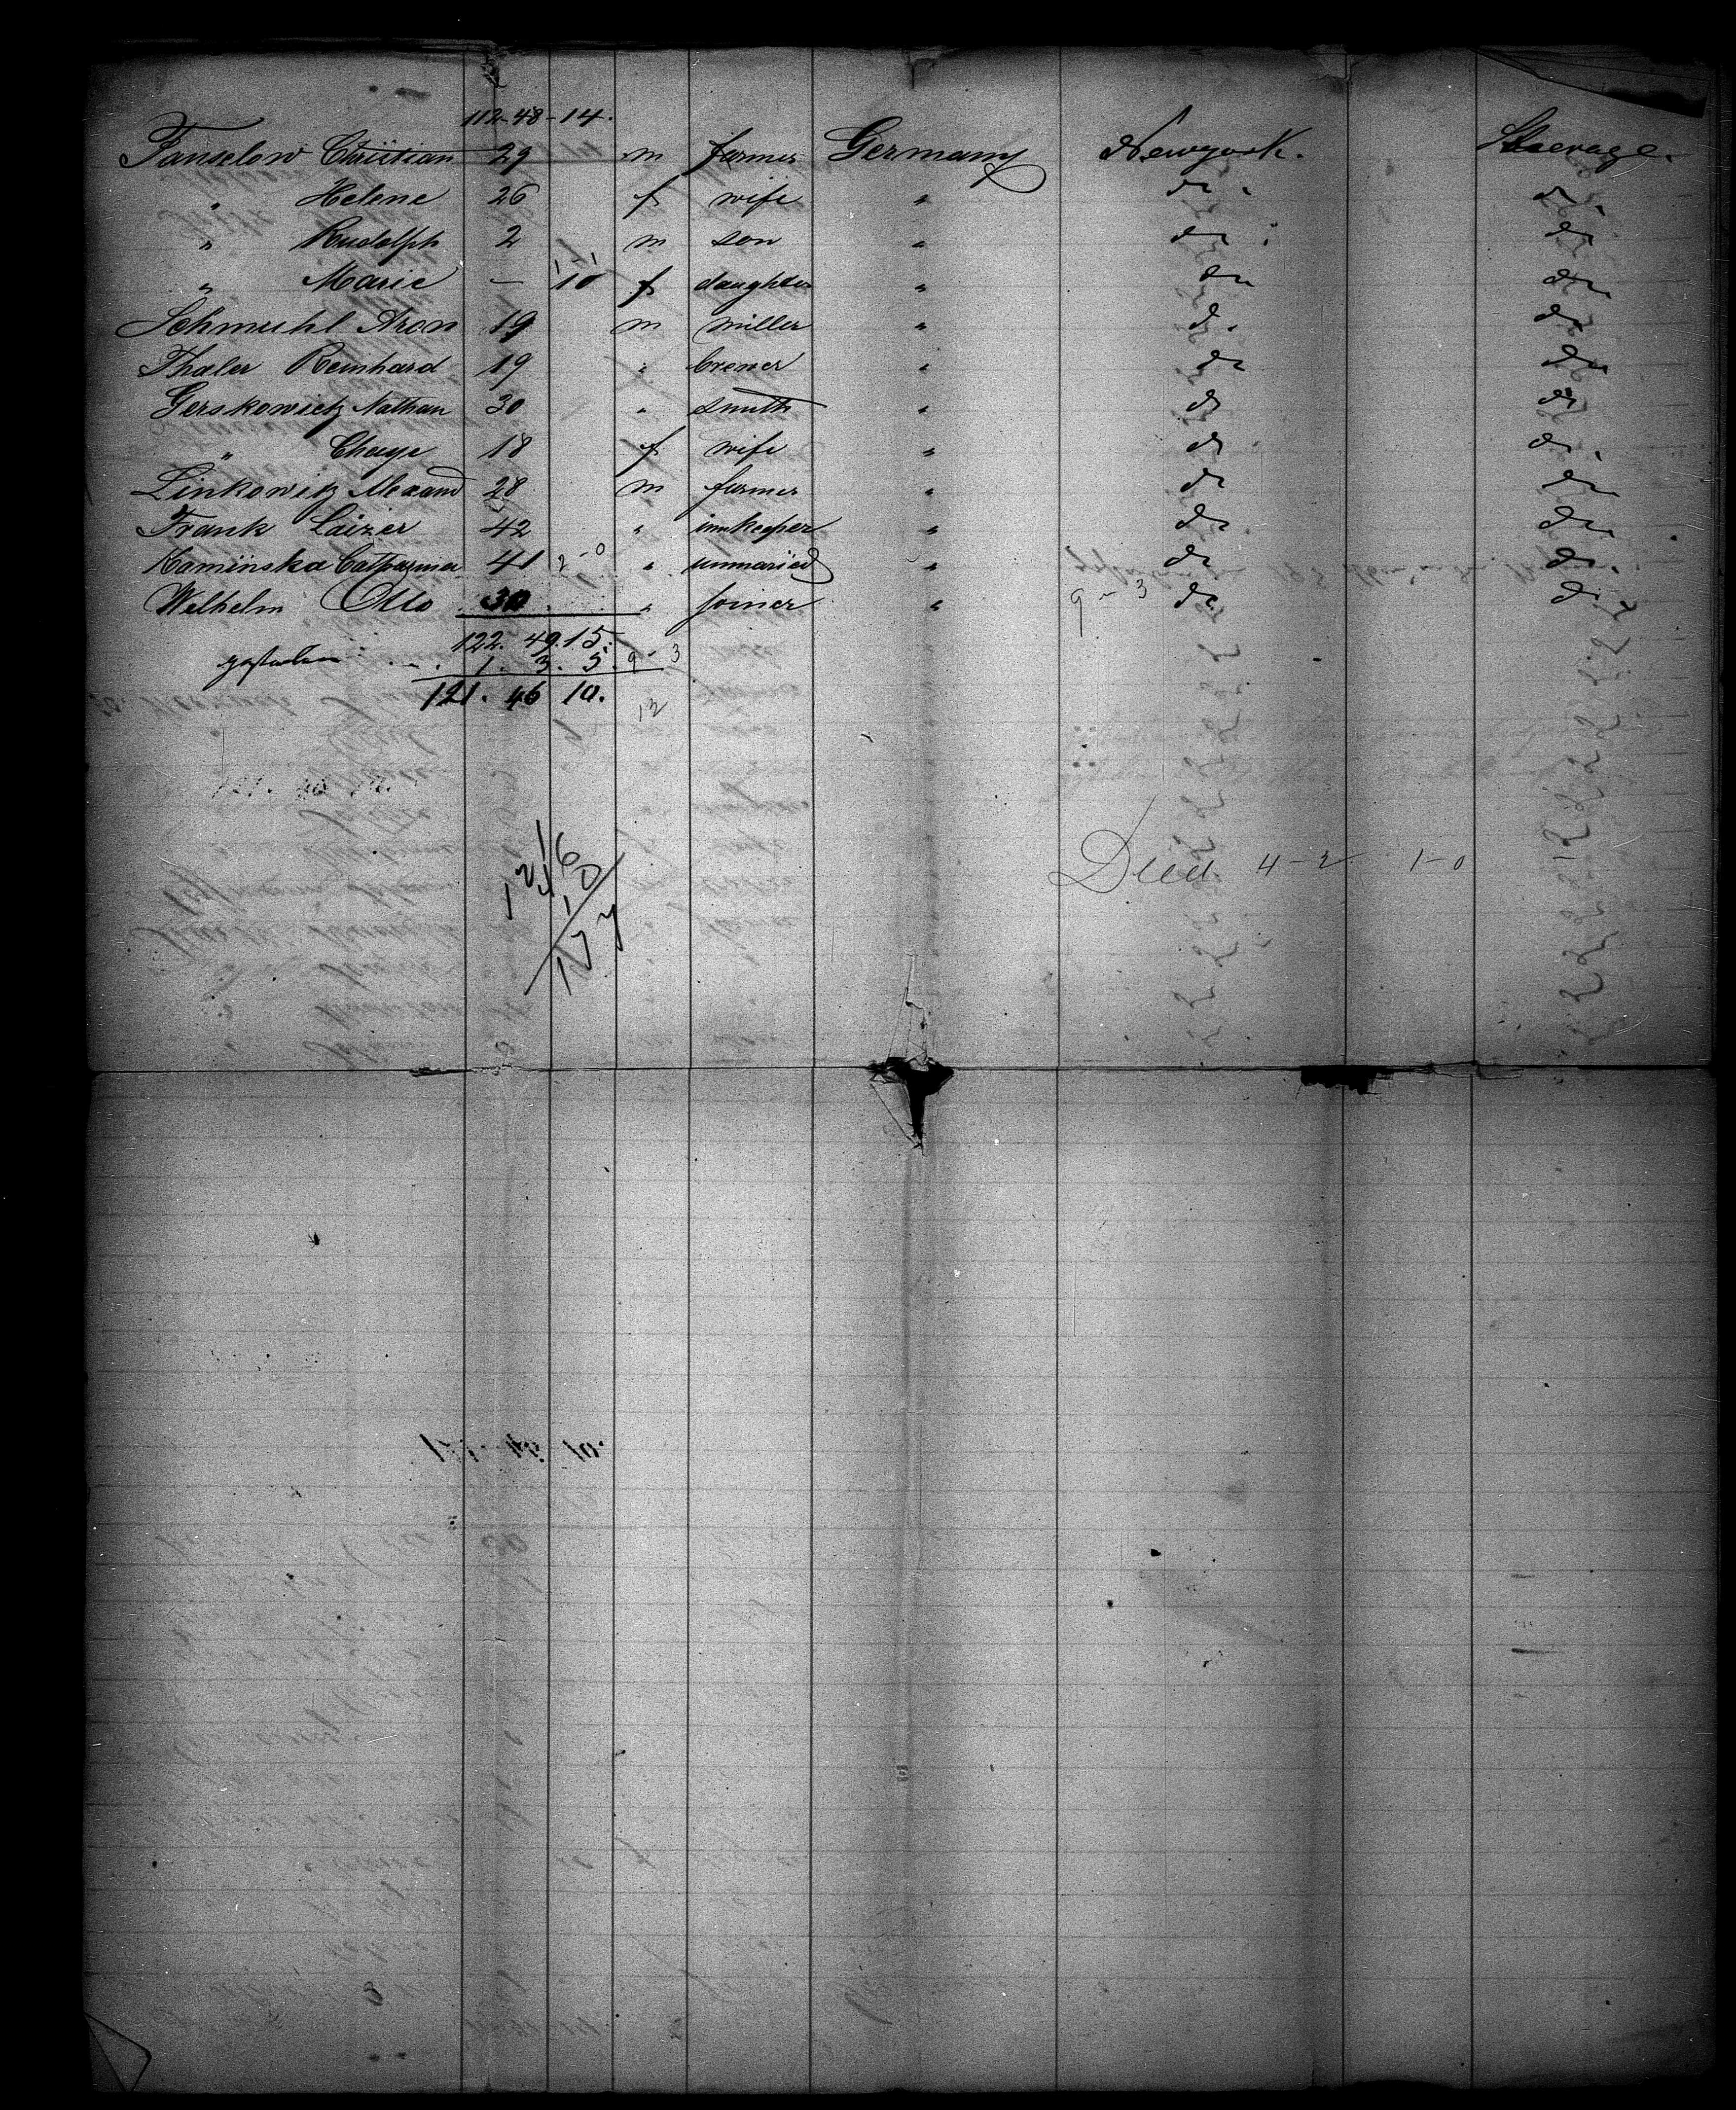 112-48-14.
Fanselow Christian 29 m farmer Germany Newyork. Steerage.
" Helene 26 f wife " do. do.
" Rudolph 2 m son " do do
" Marie — 10 f daughter " do do
Schmuhl Aron 19 m miller " do. do
Thaler Reinhard 19 " brewer " do do
Gerskowietz Nathan 30 " smith " do do
" Chaye 18 f wife " do do.
Linkowitz Alexand 28 m farmer " do do
Frank Laizer 42 " innkeeper " do do
Kaminska Catharina 41 2-0 " unmaried " do do.
Wilhelm Otto 30 " joiner " 9-3 do do
122. 49. 15.
gestorben 1. 3. 5. 9-3
121. 46 10. 12
121
46
10
177
Died 4-2 1-0